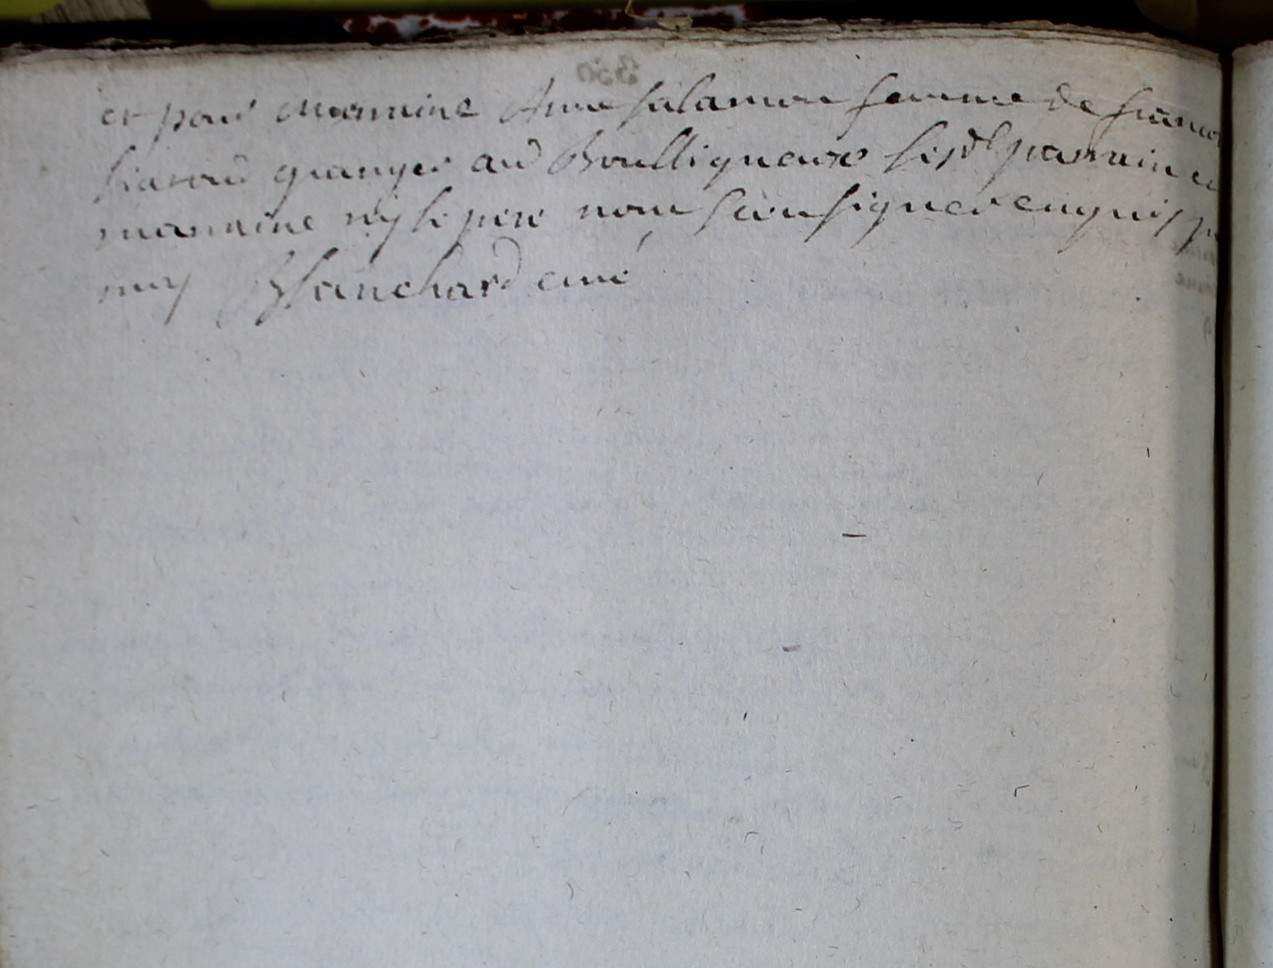 et pour marraine Anne salamon femme de francoi
granger aud Boulligneux lesd parrain et
marraine ny le pere nont sceu signer enquis p
moy Blanchard curé